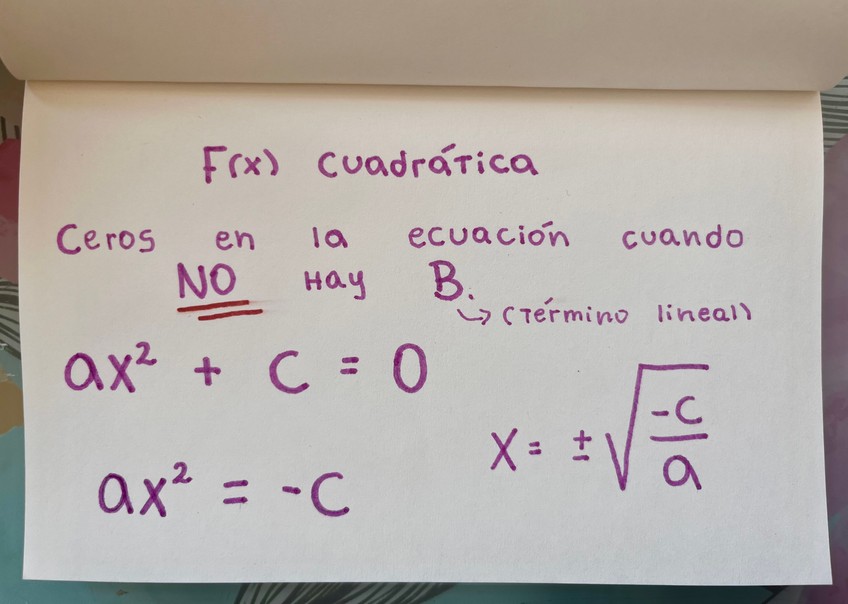 F(x) cuadrática
Ceros en la ecuación cuando
NO Hay B.
↳ (Término lineal)
ax² + c = 0
x = ± √(-c/a)
ax² = -c